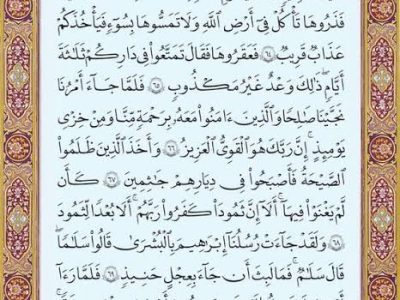 فَذَرُوهَا تَأْكُلْ فِىٓ أَرْضِ ٱللَّهِ وَلَا تَمَسُّوهَا بِسُوٓءٍ فَيَأْخُذَكُمْ
عَذَابٌ قَرِيبٌ ٦٤ فَعَقَرُوهَا فَقَالَ تَمَتَّعُوا۟ فِى دَارِكُمْ ثَلَٰثَةَ
أَيَّامٍ ۖ ذَٰلِكَ وَعْدٌ غَيْرُ مَكْذُوبٍ ٦٥ فَلَمَّا جَآءَ أَمْرُنَا
نَجَّيْنَا صَٰلِحًا وَٱلَّذِينَ ءَامَنُوا۟ مَعَهُۥ بِرَحْمَةٍ مِّنَّا وَمِنْ خِزْىِ
يَوْمِئِذٍ ۗ إِنَّ رَبَّكَ هُوَ ٱلْقَوِىُّ ٱلْعَزِيزُ ٦٦ وَأَخَذَ ٱلَّذِينَ ظَلَمُوا۟
ٱلصَّيْحَةُ فَأَصْبَحُوا۟ فِى دِيَٰرِهِمْ جَٰثِمِينَ ٦٧ كَأَن
لَّمْ يَغْنَوْا۟ فِيهَآ ۗ أَلَآ إِنَّ ثَمُودَا۟ كَفَرُوا۟ رَبَّهُمْ ۗ أَلَا بُعْدًا لِّثَمُودَ
٦٨ وَلَقَدْ جَآءَتْ رُسُلُنَآ إِبْرَٰهِيمَ بِٱلْبُشْرَىٰ قَالُوا۟ سَلَٰمًا ۖ
قَالَ سَلَٰمٌ ۖ فَمَا لَبِثَ أَن جَآءَ بِعِجْلٍ حَنِيذٍ ٦٩ فَلَمَّا رَءَآ